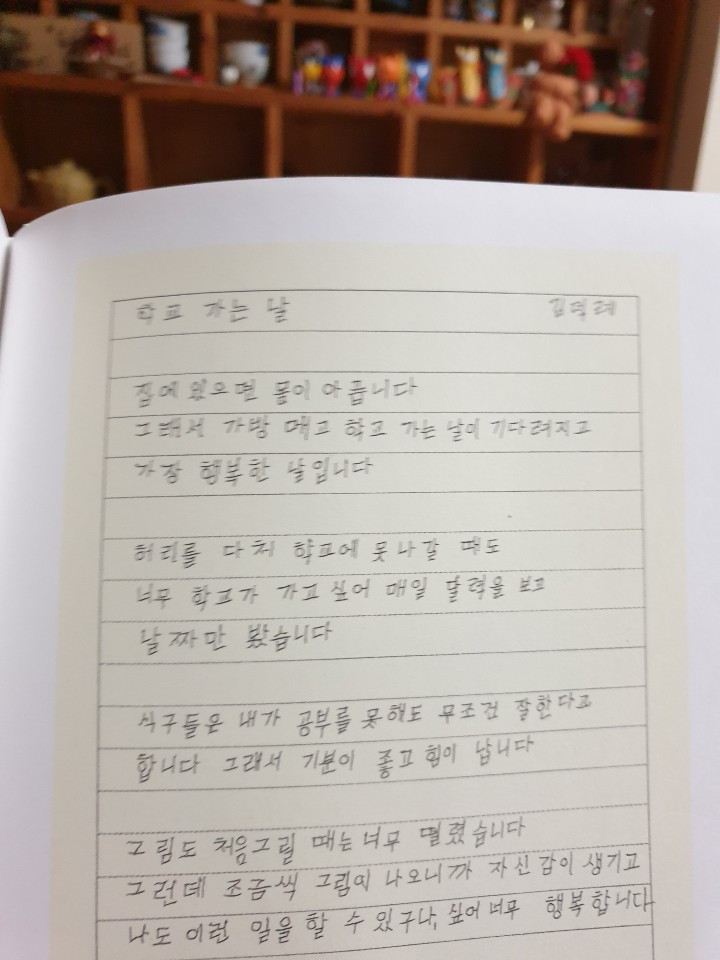 학교 가는 날 김덕례
집에 있으면 몸이 아픕니다
그래서 가방 메고 학교 가는 날이 기다려지고
가장 행복한 날입니다
허리를 다쳐 학교에 못 나갈 때도
너무 학교가 가고 싶어 매일 달력을 보고
날짜만 봤습니다
식구들은 내가 공부를 못해도 무조건 잘한다고
합니다 그래서 기분이 좋고 힘이 납니다
그림도 처음그릴 때는 너무 떨렸습니다
그런데 조금씩 그림이 나오니까 자신감이 생기고
나도 이런 일을 할 수 있구나, 싶어 너무 행복합니다